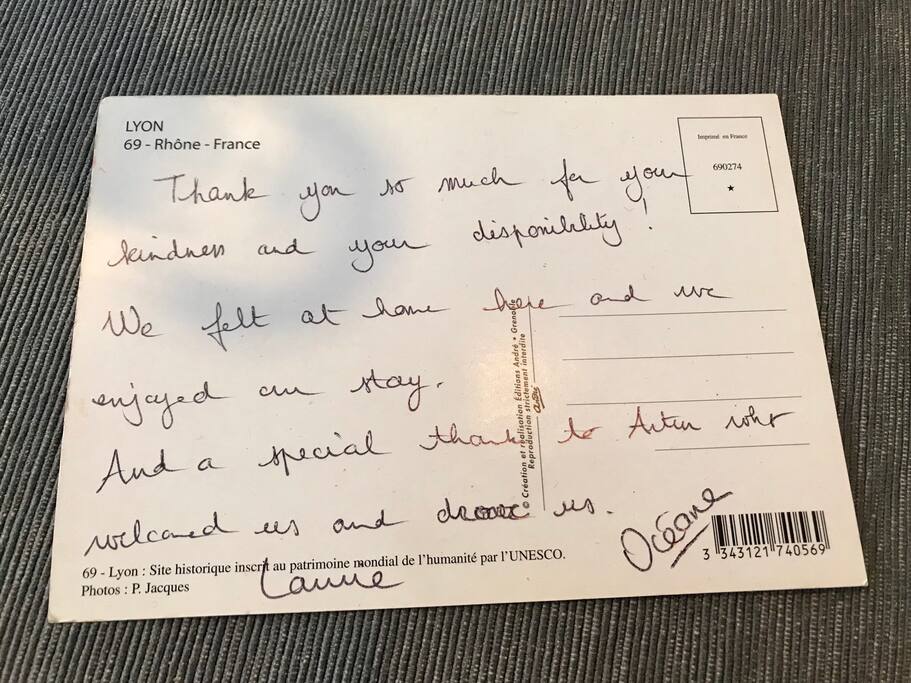 LYON
69 - Rhône - France
Imprimé en France
690274
Thank you so much for your
kindness and your disponibility !
We felt at home here and we
enjoyed our stay.
And a special thank to Artur who
welcomed us and drove us.
© Création et réalisation Editions André • Grenoble
Reproduction strictement interdite
André
Océane
3 343121 740569
69 - Lyon : Site historique inscrit au patrimoine mondial de l'humanité par l'UNESCO.
Photos : P. Jacques